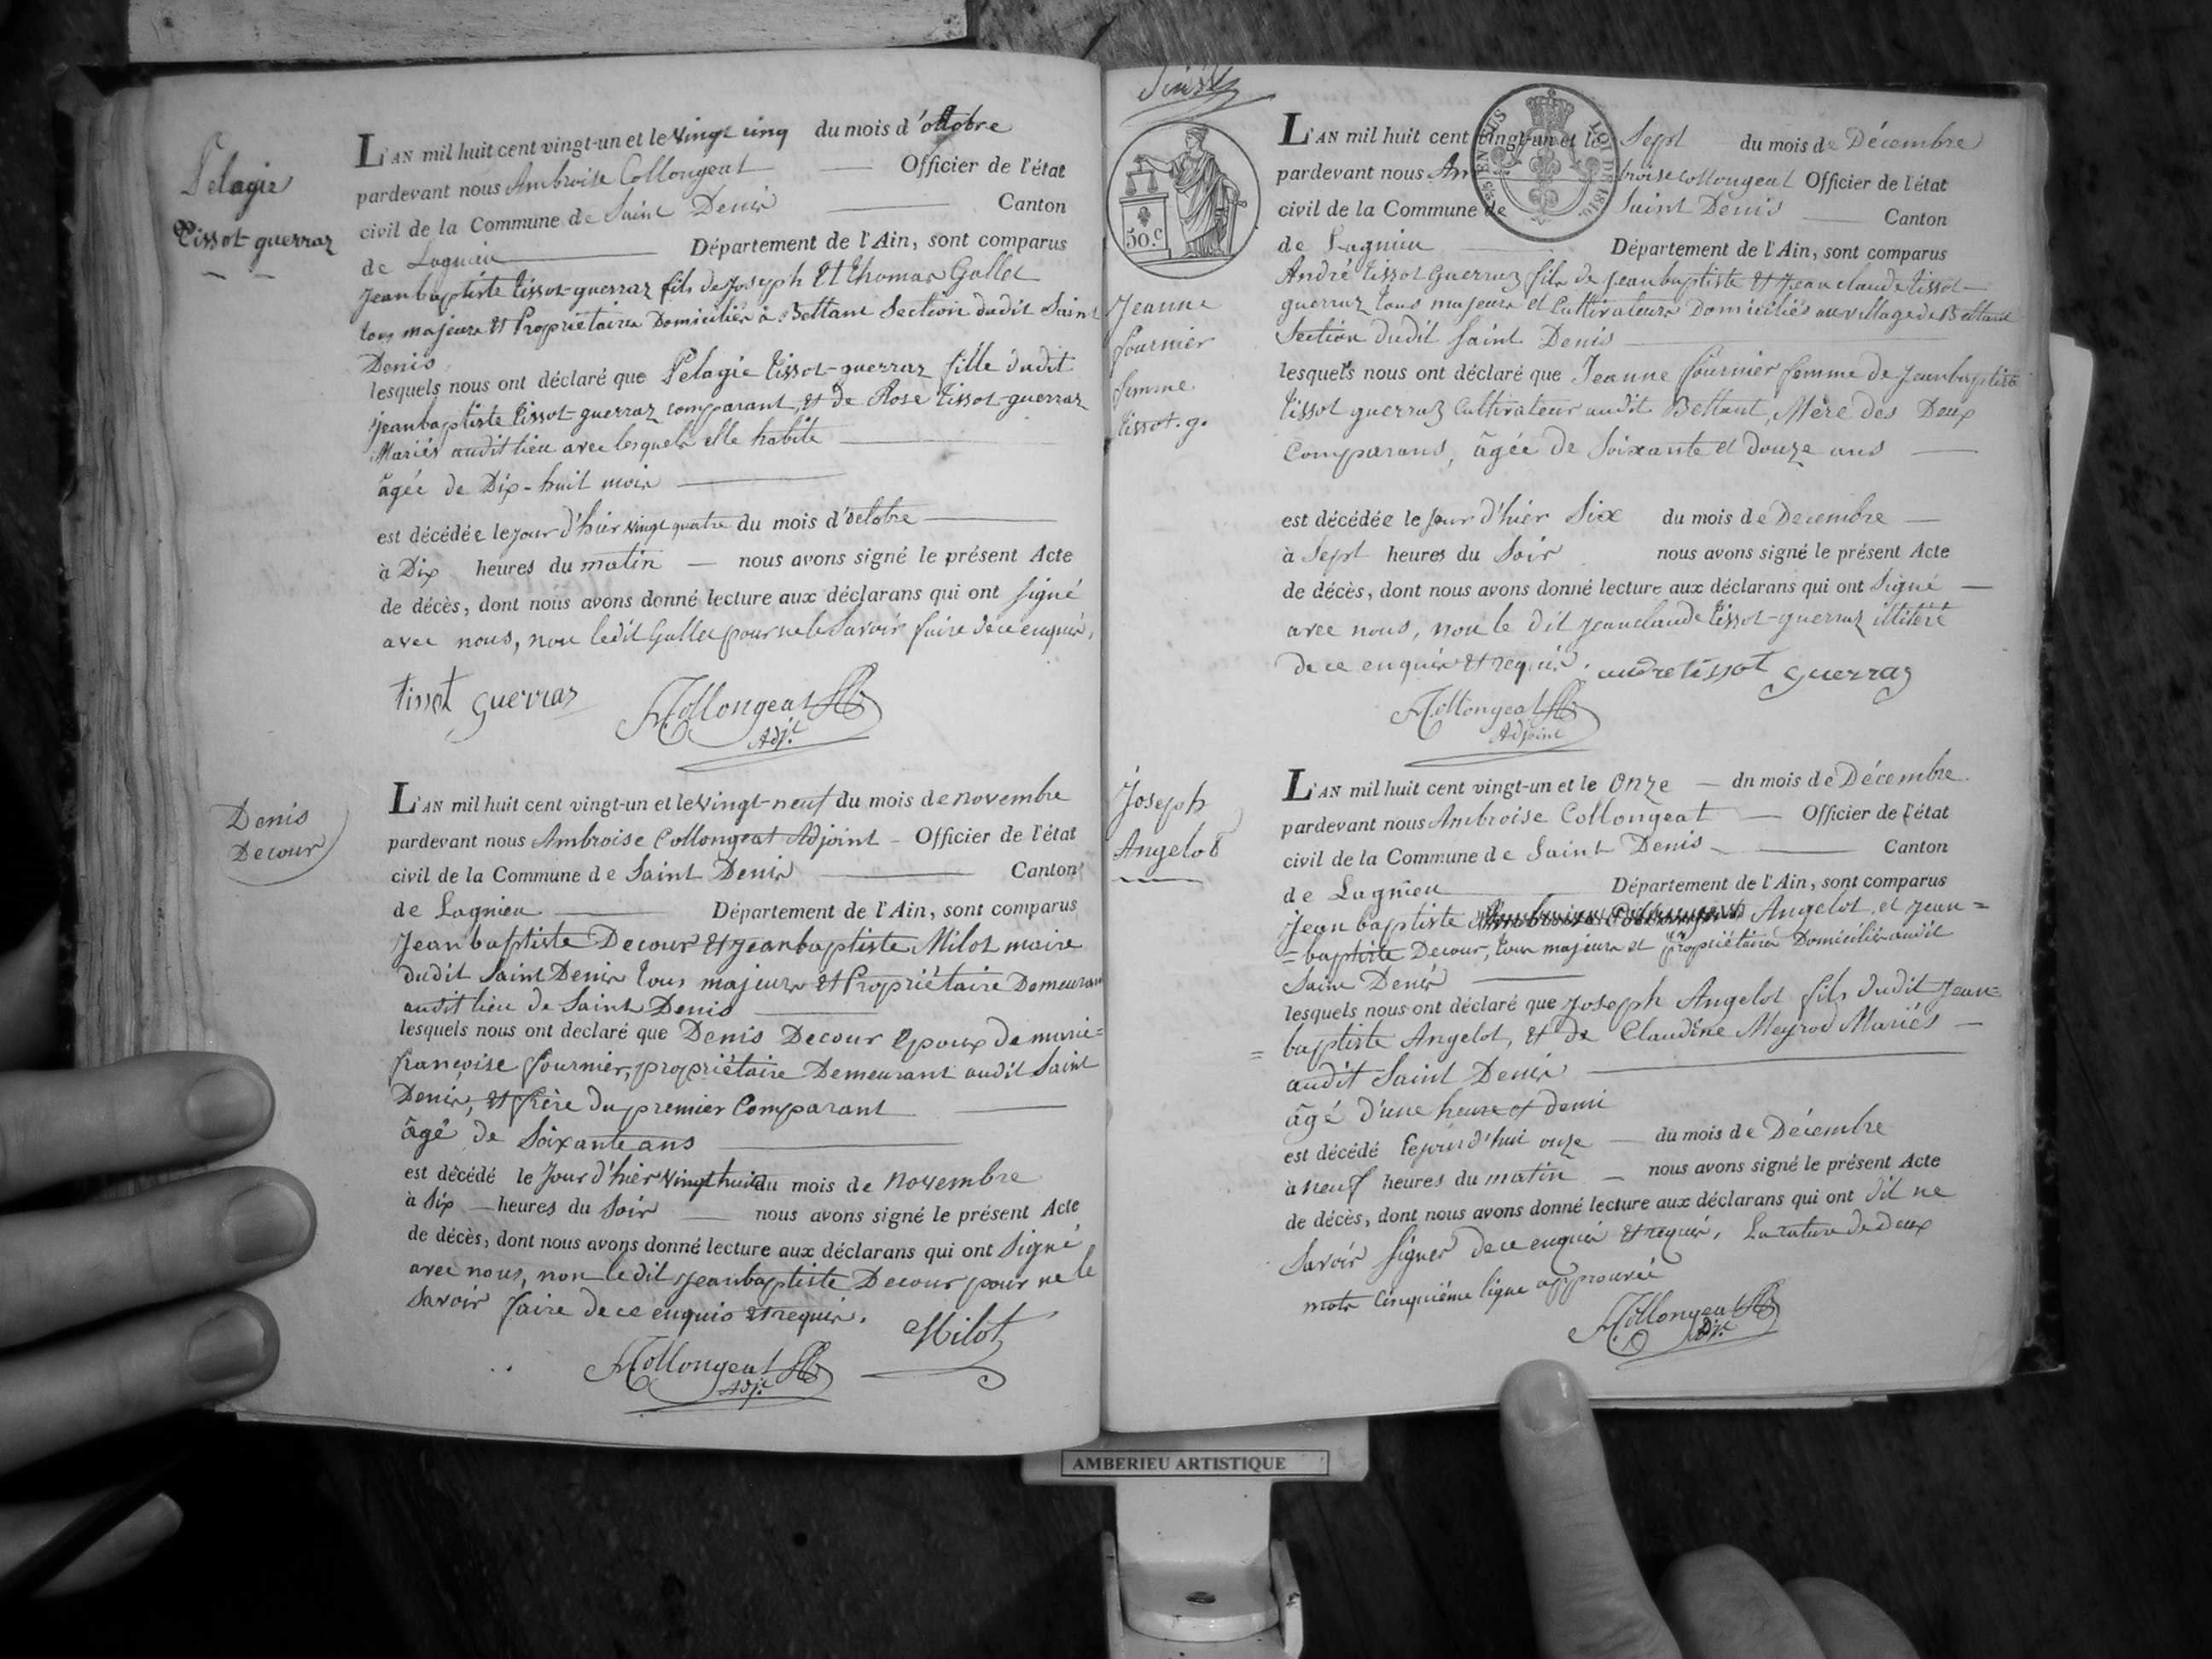 Pelagie
tissot guerraz
L'AN mil huit cent vingt-un et le vingt cinq du mois d'octobre
pardevant nous Ambroise Collongeat — Officier de l'état
civil de la Commune de Saint Denis — Canton
de Lagnieu — Département de l'Ain, sont comparus
Jean baptiste tissot-guerraz fils de Joseph Et thomas Gallet
tous majeurs Et Propriétaires Domiciliés à Bettant Section dudit Saint
Denis
lesquels nous ont déclaré que Pelagie tissot-guerraz fille dudit
jeanbaptiste tissot-guerraz comparant, et de Rose tissot-guerraz
Mariés audit lieu avec lesquels elle habite —
âgée de Dix-huit mois —
est décédée le jour d'hier vingt quatre du mois d'octobre —
à Dix heures du matin — nous avons signé le présent Acte
de décès, dont nous avons donné lecture aux déclarans qui ont signé
avec nous, non ledit Gallet pour ne le Savoir faire de ce enquis,
tissot guerraz
Collongeat
Adj.t
Denis
Decour
L'AN mil huit cent vingt-un et le vingt-neuf du mois de novembre
pardevant nous Ambroise Collongeat Adjoint - Officier de l'état
civil de la Commune de Saint Denis — Canton
de Lagnieu — Département de l'Ain, sont comparus
Jean baptiste Decour et jeanbaptiste Milot maire
dudit Saint Denis tous majeurs et Propriétaire Demeurans
audit lieu de Saint Denis —
lesquels nous ont declaré que Denis Decour Epoux de marie=
françoise fournier, propriétaire Demeurant audit Saint
Denis, et frère du premier Comparant —
âgé de Soixante ans —
est décédé le Jour d'hier vingt huit du mois de novembre
à Six — heures du Soir — nous avons signé le présent Acte
de décès, dont nous avons donné lecture aux déclarans qui ont Signé
avec nous, non le dit jeanbaptiste Decour pour ne le
Savoir faire de ce enquis et requis.
Milot
Collongeat
Adj.t
LOI DE 1816.
EN SUS
50.c
Jeanne
fournier
femme
tissot.g.
L'AN mil huit cent vingt-un et le Sept du mois de Décembre
pardevant nous Ambroise Collongeat Officier de l'état
civil de la Commune de Saint Denis — Canton
de Lagnieu — Département de l'Ain, sont comparus
André tissot Guerraz fils de jeanbaptiste Et Jean claude tissot-
guerraz tous majeurs et Cultivateurs Domiciliés au village de Bettant
Section dudit Saint Denis —
lesquels nous ont déclaré que Jeanne fournier femme de Jeanbaptiste
tissot guerraz Cultivateur audit Bettant, Mère des Deux
Comparans, âgée de Soixante et douze ans —
est décédée le Jour d'hier Six du mois de Decembre —
à Sept heures du Soir nous avons signé le présent Acte
de décès, dont nous avons donné lecture aux déclarans qui ont Signé —
avec nous, non le dit jeanclaude tissot-guerraz illitéré
de ce enquis et requis. andre tissot guerraz
Collongeat
Adjoint
Joseph
Angelot
L'AN mil huit cent vingt-un et le Onze — du mois de Décembre
pardevant nous Ambroise Collongeat — Officier de l'état
civil de la Commune de Saint Denis — Canton
de Lagnieu — Département de l'Ain, sont comparus
Jean baptiste Angelot et Jean=
=baptiste Decour, tous majeurs et propriétaires Domiciliés audit
Saint Denis —
lesquels nous ont déclaré que Joseph Angelot fils dudit Jean=
=baptiste Angelot, et de Claudine Meyrod Mariés —
audit Saint Denis —
âgé d'une heure et demi
est décédé le jourd'hui onze — du mois de Décembre
à neuf heures du matin — nous avons signé le présent Acte
de décès, dont nous avons donné lecture aux déclarans qui ont dit ne
Savoir signer de ce enquis et requis. La rature de Deux
mots cinquième ligne approuvée
Collongeat
Adj.t
AMBERIEU ARTISTIQUE